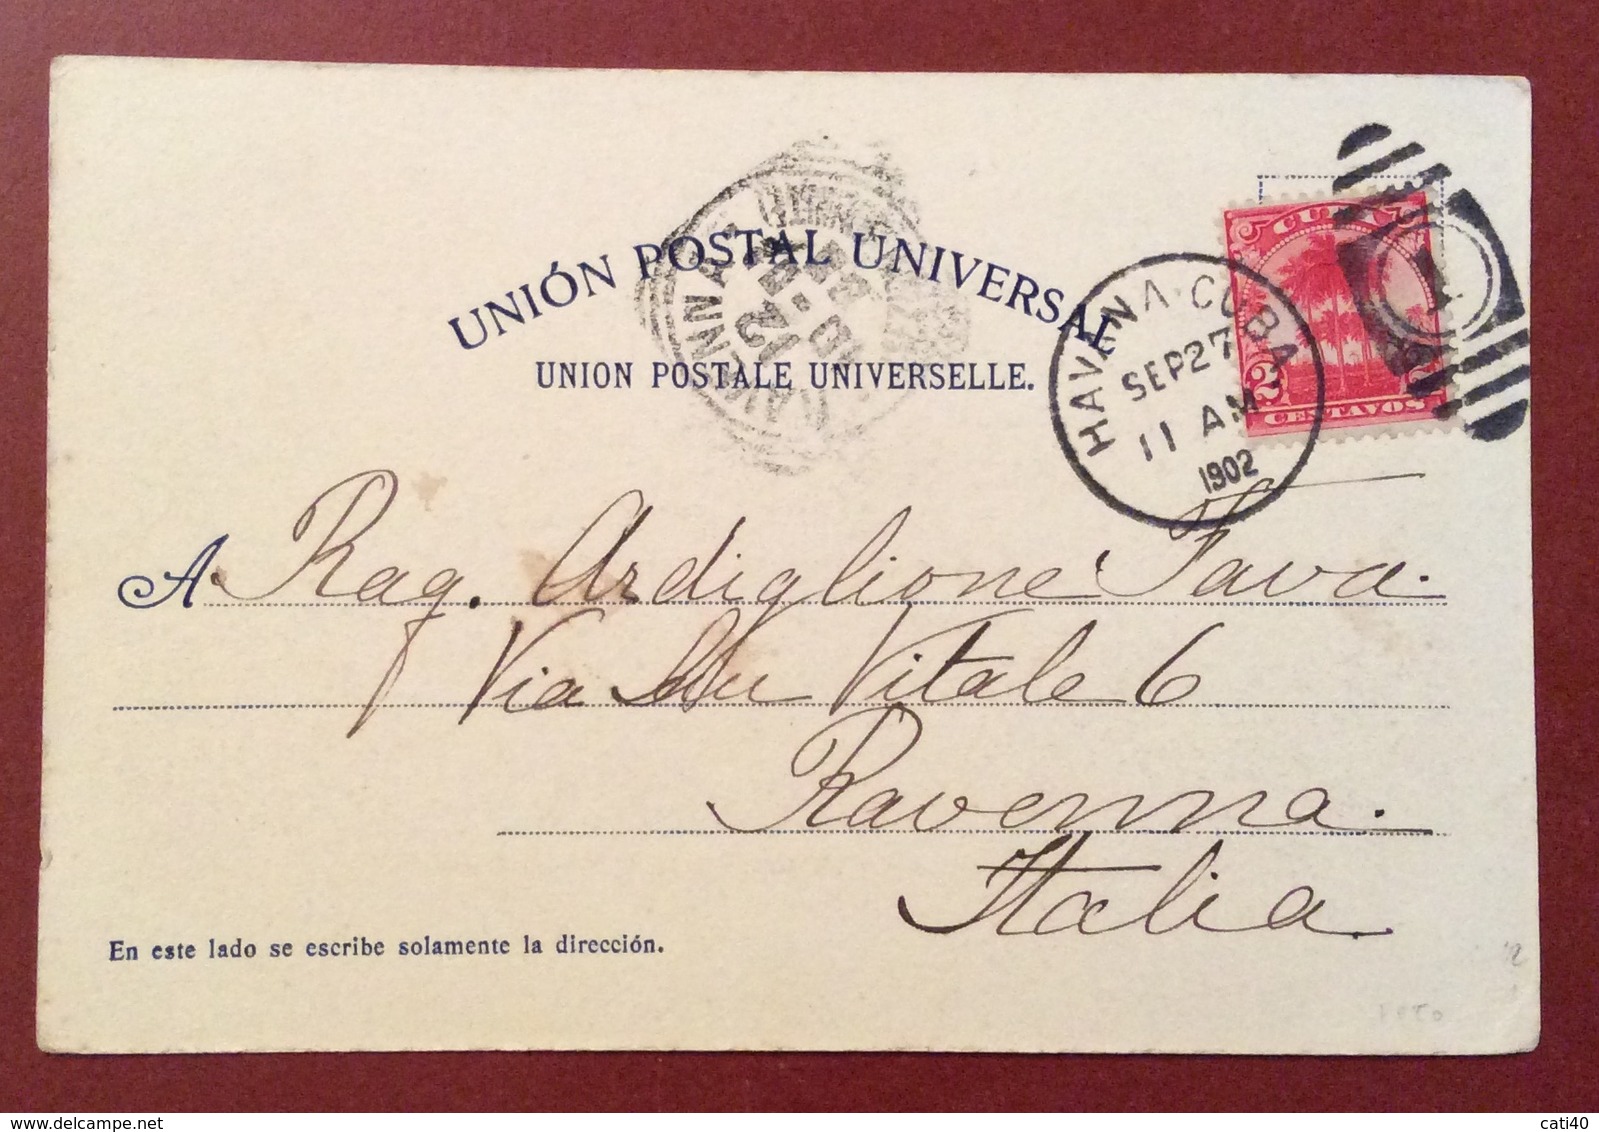 UNIÓN POSTAL UNIVERSAL
UNION POSTALE UNIVERSELLE.
CUBA
2 2
CENTAVOS
HAVANA CUBA
SEP 27
11 AM
1902
RAVENNA
12
A Rag. Ardiglione Fava.
Via Vitale 6
Ravenna.
Italia.
En este lado se escribe solamente la dirección.
cati40